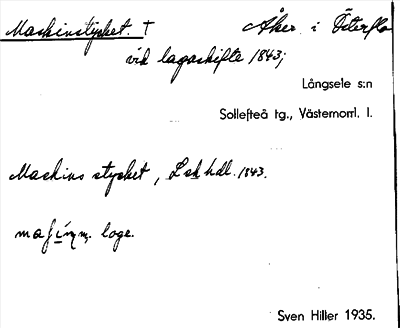 Maskinstycket. † Åker i Österflo
vid lagaskifte 1843;
Långsele s:n
Sollefteå tg., Västernorrl. l.
Maskins stycket, Lsk hdl. 1843.
loge.
Sven Hiller 1935.